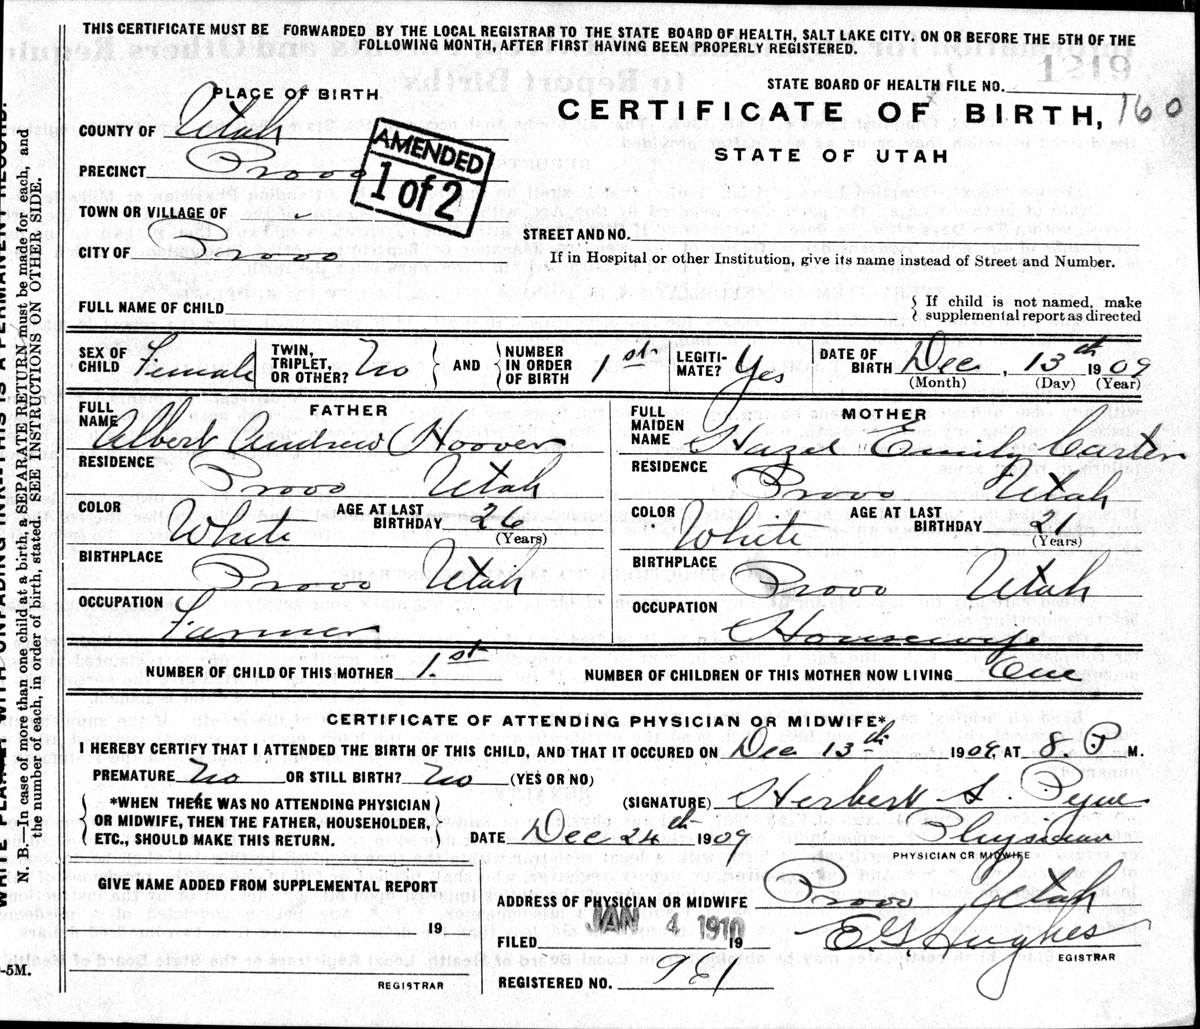 THIS CERTIFICATE MUST BE FORWARDED BY THE LOCAL REGISTRAR TO THE STATE BOARD OF HEALTH, SALT LAKE CITY, ON OR BEFORE THE 5TH OF THE
FOLLOWING MONTH, AFTER FIRST HAVING BEEN PROPERLY REGISTERED.
1319
STATE BOARD OF HEALTH FILE NO.
PLACE OF BIRTH
CERTIFICATE OF BIRTH, 160
COUNTY OF Utah
STATE OF UTAH
AMENDED
1 of 2
PRECINCT Provo
TOWN OR VILLAGE OF
STREET AND NO.
CITY OF Provo
If in Hospital or other Institution, give its name instead of Street and Number.
FULL NAME OF CHILD
If child is not named, make
supplemental report as directed
SEX OF CHILD Female
TWIN, TRIPLET, OR OTHER? No
AND
NUMBER IN ORDER OF BIRTH 1st
LEGITI-MATE? Yes
DATE OF BIRTH Dec, 13th 1909
(Month) (Day) (Year)
FATHER
FULL NAME Albert Andrew Hoover
RESIDENCE Provo Utah
COLOR White AGE AT LAST BIRTHDAY 26
(Years)
BIRTHPLACE Provo Utah
OCCUPATION Farmer
MOTHER
FULL MAIDEN NAME Hazel Emily Carter
RESIDENCE Provo Utah
COLOR White AGE AT LAST BIRTHDAY
(Years)
BIRTHPLACE Provo Utah
OCCUPATION Housewife
NUMBER OF CHILD OF THIS MOTHER 1st
NUMBER OF CHILDREN OF THIS MOTHER NOW LIVING One
CERTIFICATE OF ATTENDING PHYSICIAN OR MIDWIFE*
I HEREBY CERTIFY THAT I ATTENDED THE BIRTH OF THIS CHILD, AND THAT IT OCCURED ON Dec 13th 1909, AT 8. P M.
PREMATURE No OR STILL BIRTH? No (YES OR NO)
*WHEN THERE WAS NO ATTENDING PHYSICIAN
OR MIDWIFE, THEN THE FATHER, HOUSEHOLDER,
ETC., SHOULD MAKE THIS RETURN.
(SIGNATURE) Herbert S. Pyne
DATE Dec 24th 1909 Physician
PHYSICIAN OR MIDWIFE
GIVE NAME ADDED FROM SUPPLEMENTAL REPORT
19
REGISTRAR
ADDRESS OF PHYSICIAN OR MIDWIFE Provo Utah
FILED JAN 4 1910 19 E G Hughes
EGISTRAR
REGISTERED NO. 981
-5M.
N. B.—In case of more than one child at a birth, a SEPARATE RETURN must be made for each, and
the number of each, in order of birth, stated. SEE INSTRUCTIONS ON OTHER SIDE.